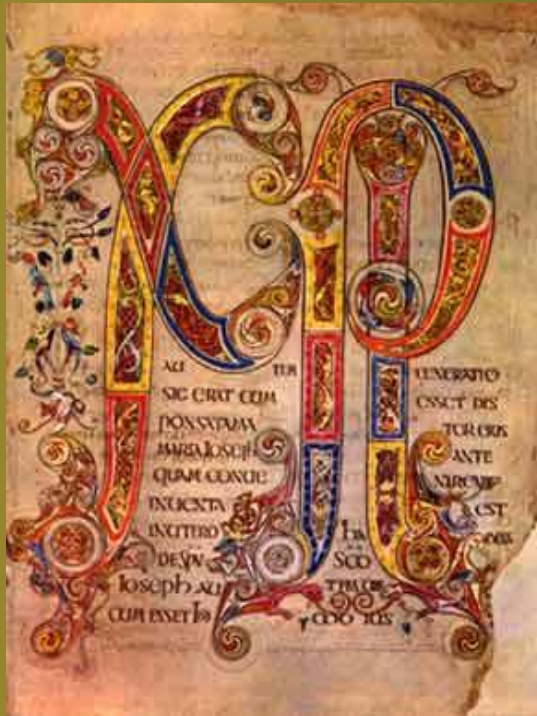 XPI
AU TEM GENERATIO
SIC ERAT CUM ESSET DIS
PONSATA MA TER EIUS
MARIA IOSEPH ANTE
QUAM CONUE
INUENTA EST
IN UTERO HA BENS
DE SCO
IOSEPH AU
CUM ESSET MO IUS